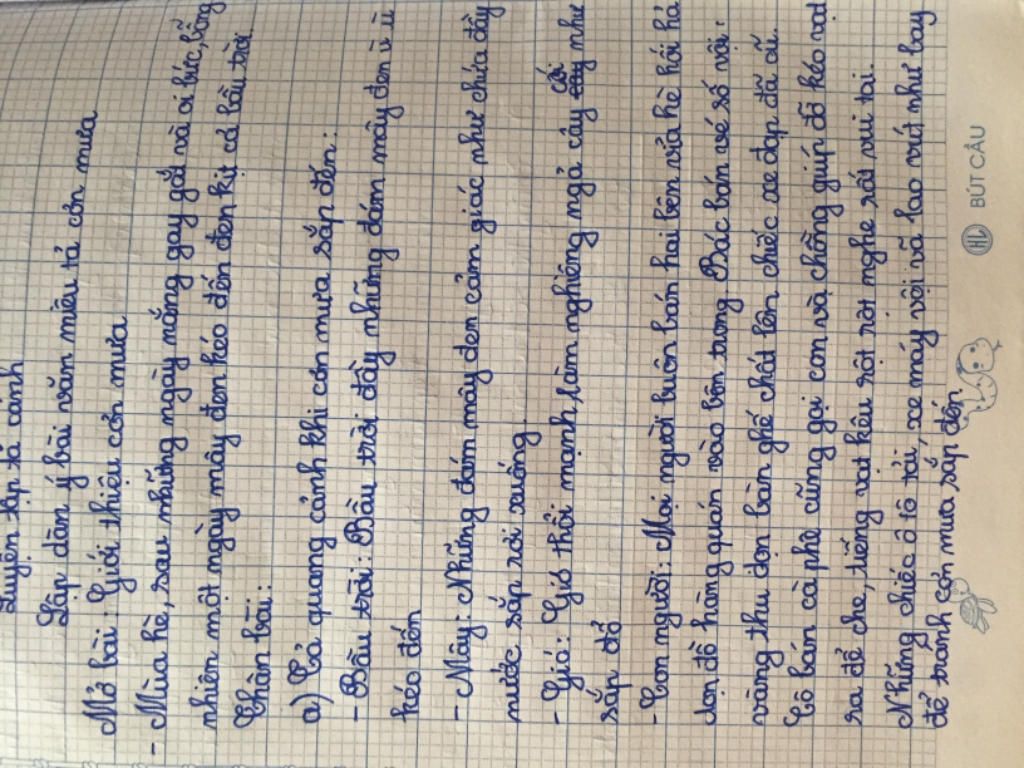 Luyện tập tả cảnh
Lập dàn ý bài văn miêu tả cơn mưa
Mở bài: Giới thiệu cơn mưa
- Mùa hè, sau những ngày nắng gay gắt và oi bức, bỗng
nhiên một ngày mây đen kéo đến đen kịt cả bầu trời
Thân bài:
a) Tả quang cảnh khi cơn mưa sắp đến:
- Bầu trời: Bầu trời đầy những đám mây đen ù ù
kéo đến
- Mây: Những đám mây đen cảm giác như chứa đầy
nước sắp rơi xuống
- Gió: Gió thổi mạnh, làm nghiêng ngả cây cối như
sắp đổ
- Con người: Mọi người buôn bán hai bên vỉa hè hối hả
dọn đồ hàng quán vào bên trong. Bác bán vé số vội
vàng thu dọn bàn ghế chất lên chiếc xe đạp đã cũ.
Cô bán cà phê cũng gọi con và chồng giúp đỡ kéo vạt
ra để che, tiếng vạt kêu rột rột nghe rất vui tai.
Những chiếc ô tô tải, xe máy vội vã lao vút như bay
để tránh cơn mưa sắp đến.
BÚT CẦU